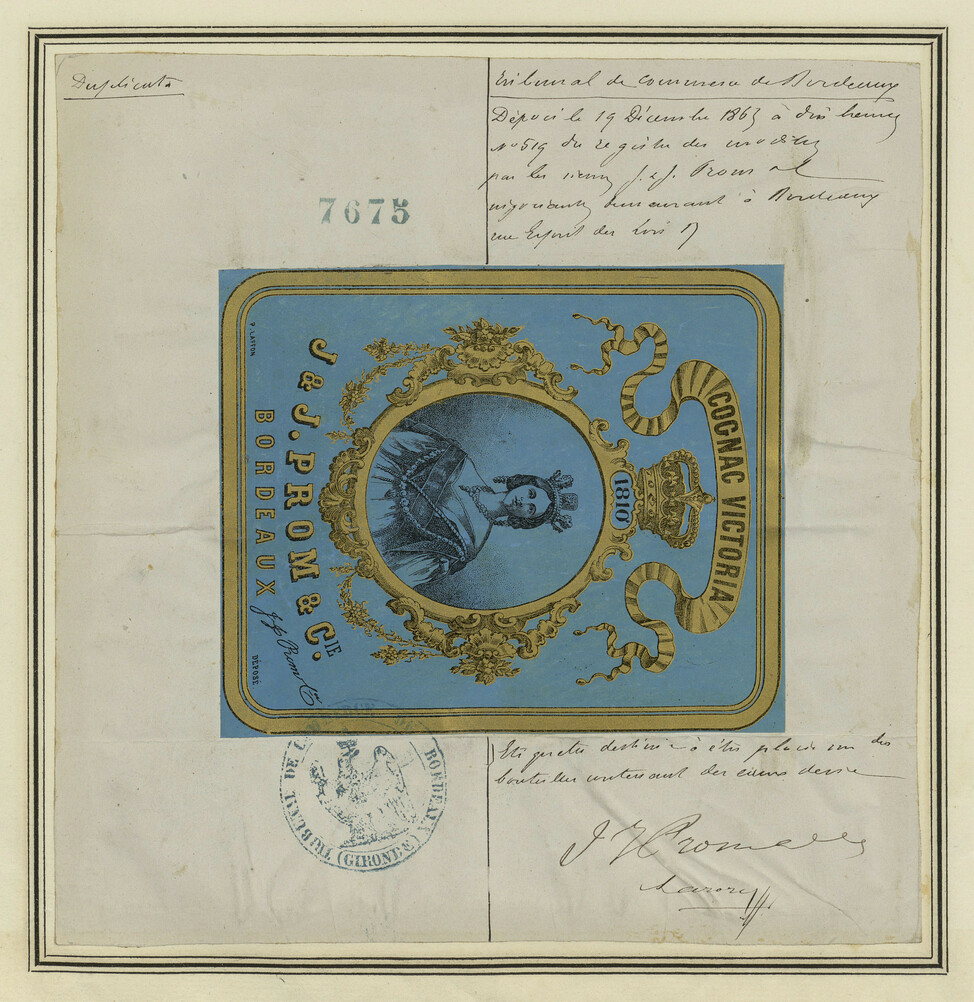 Duplicata
Tribunal de Commerce de Bordeaux
Déposé le 19 Décembre 1863 à dix heures
No 519 du registre des modèles
par les sieurs J. & J. Prom et
négociants demeurant à Bordeaux
rue Esprit des Lois
7675
COGNAC VICTORIA
1810
J & J. PROM & CIE.
BORDEAUX
J J Prom & Cie
P. LAYTON
DÉPOSÉ
TRIBUNAL DE COMMERCE DE BORDEAUX
(GIRONDE)
Etiquette destinée à être placée sur des
bouteilles contenant des
J J Prom